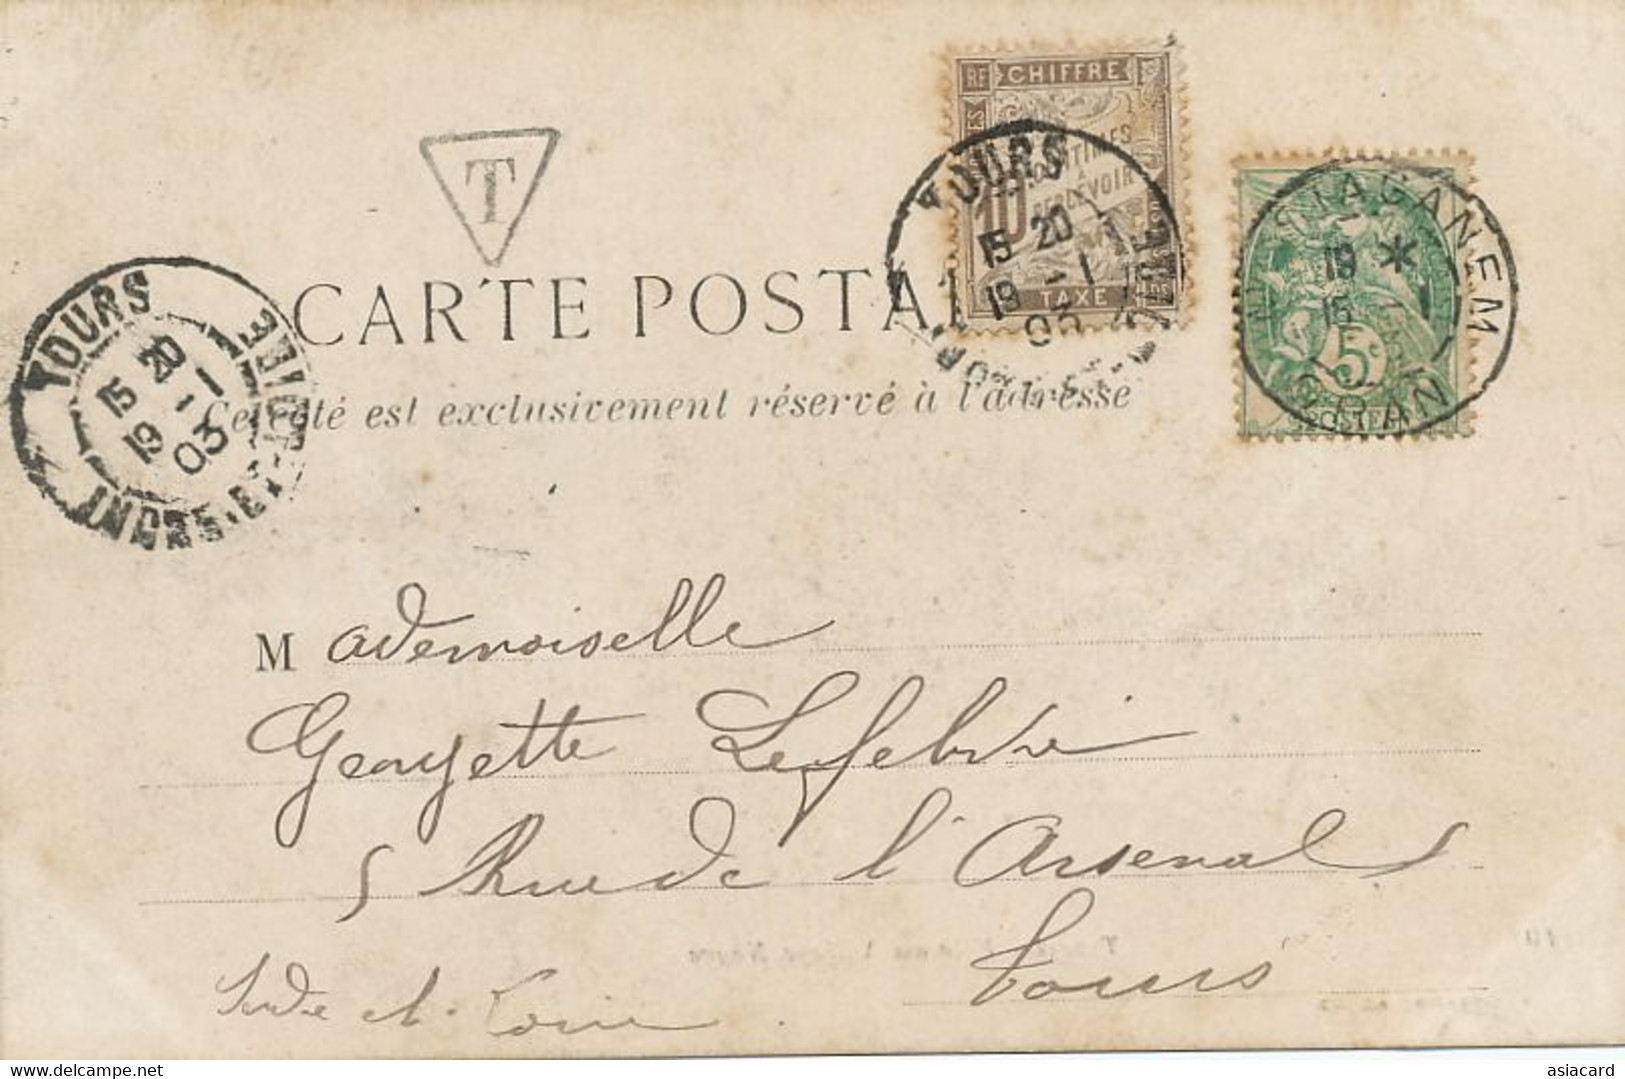 RF CHIFFRE
CENTIMES
À
PERCEVOIR
10
TAXE
TOURS
15 20
19 -1
03
T
MOSTAGANEM
19 *
15
ORAN
5c
POSTES
CARTE POSTA
Ce côté est exclusivement réservé à l'adresse
TOURS
15 20
19 -1
03
INDRE-ET-LOIRE
Mademoiselle
Georgette Lefebvre
5 Rue de l'Arsenal
Tours
Indre et Loire
asiacard